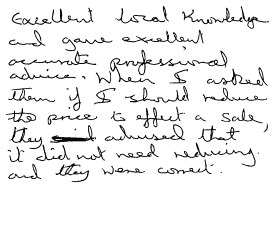 Excellent local Knowledge
and gave excellent
accurate professional
advice. When I asked
them if I should reduce
the price to effect a sale,
they advised that
it did not need reducing.
and they were correct.